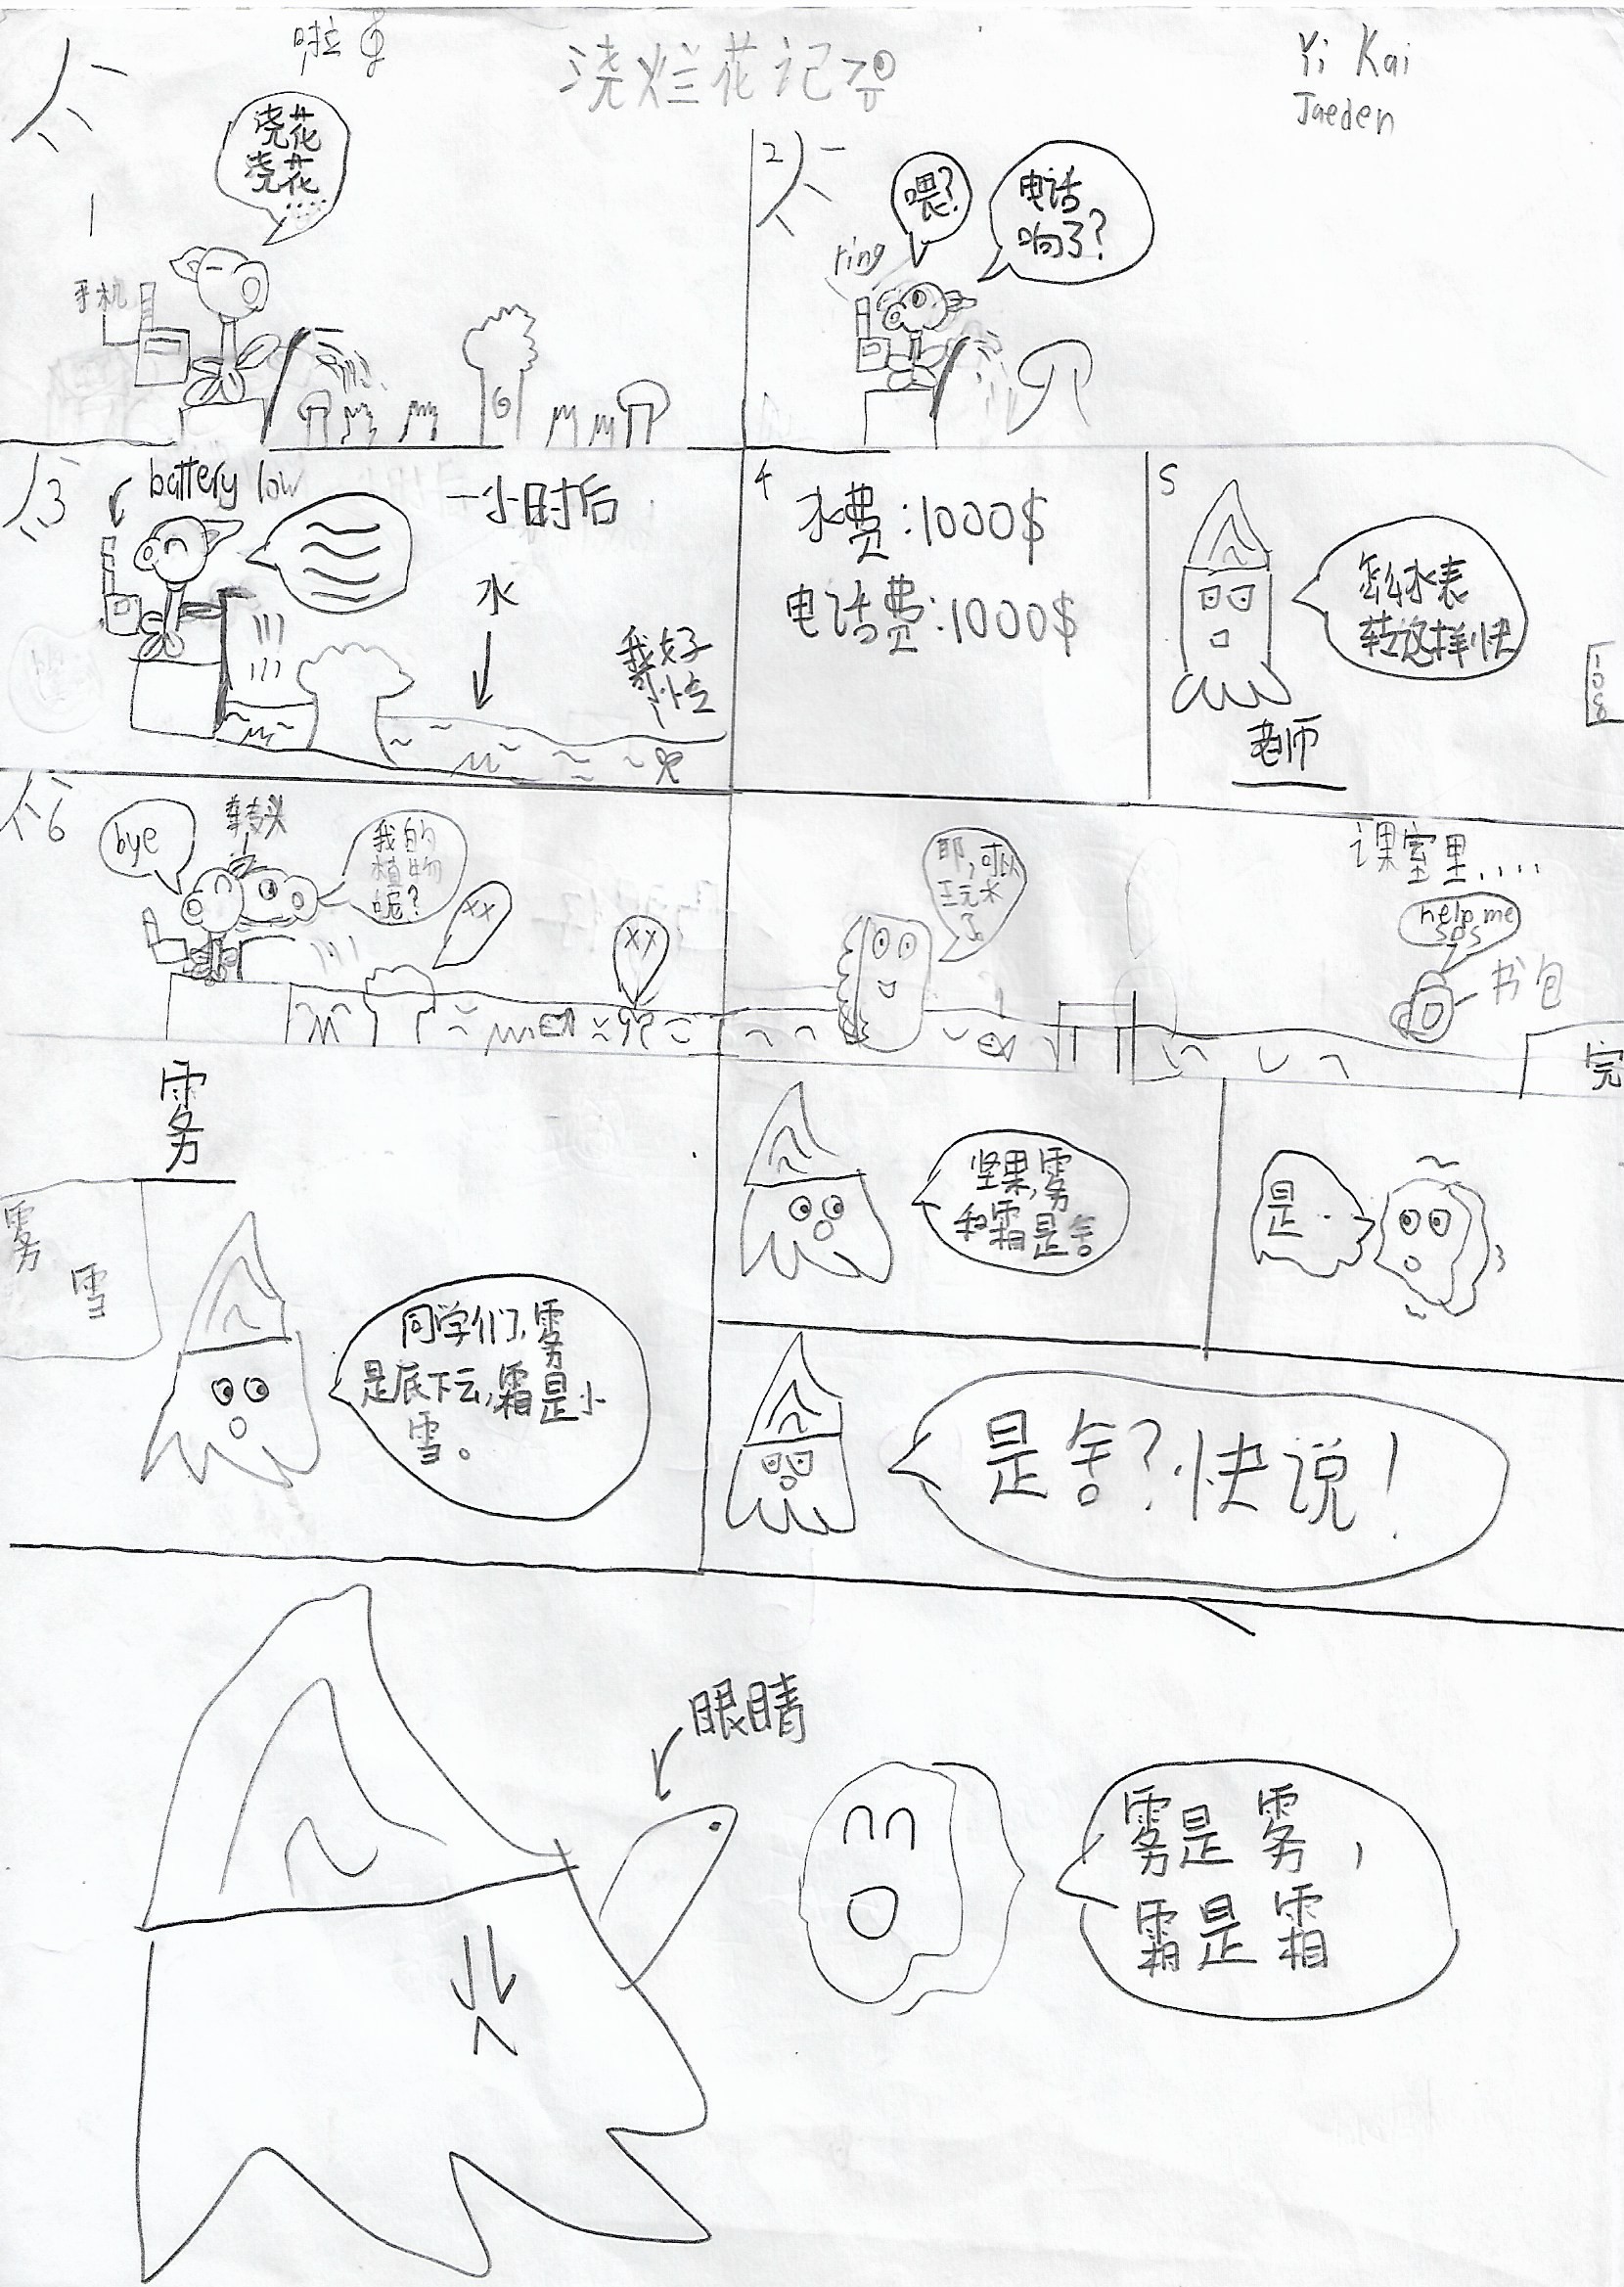 啦
浇烂花记
Yi Kai
Jaeden
浇花
浇花
......
手机
1
2
喂?
电话
响了?
ring
3
battery low
一小时后
水
我好
4
水费:1000$
电话费:1000$
5
水表
转这样快
老师
6
bye
转头
我的
植物
呢?
xx
xx
耶,可以
玩水
了
课室里....
help me
sos
书包
完
雾
雾
雪
同学们,雾
是底下云,霜是小
雪。
坚果,雾
和霜是
是..
是 ?快说!
眼睛
雾是雾,
霜是霜